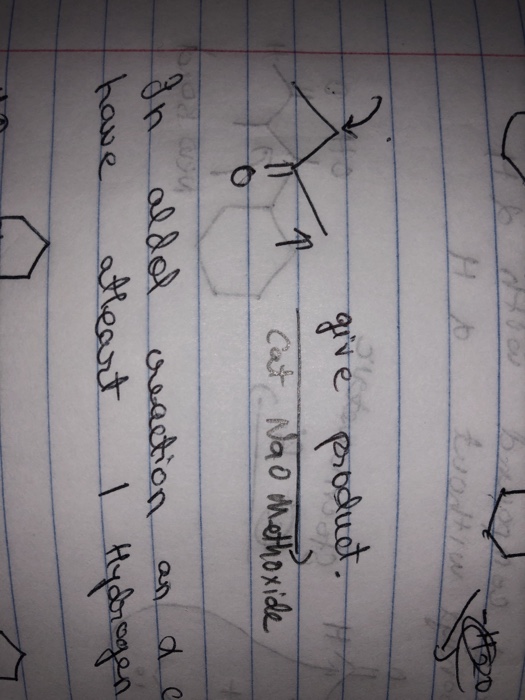 give product.
O
Cat NaO Methoxide
In aldol reaction an α c
have atleart 1 Hydrogen
-H2O